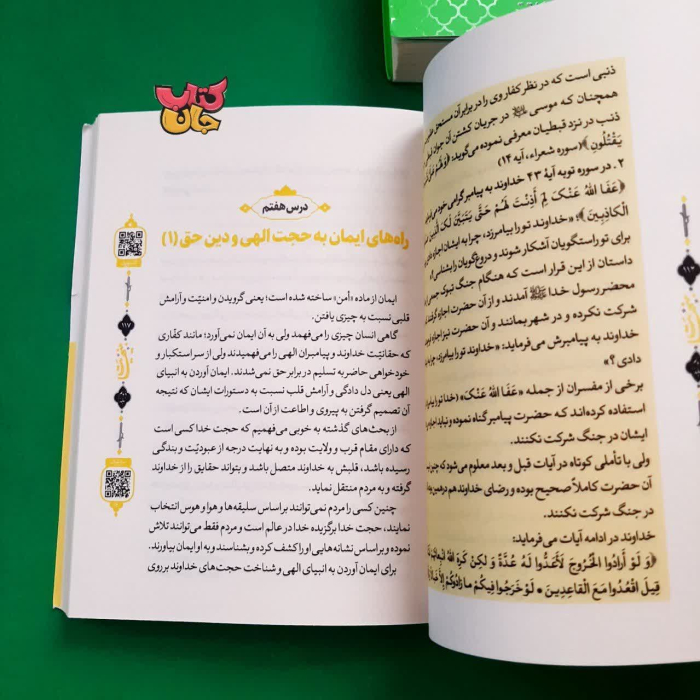 کتاب
جان
ذنبی است که در نظر کفار وی را در برابر آن مستحق
همچنان که موسی در جریان کشتن آن جوان
ذنب در نزد قبطیان معرفی نموده می‌گوید: ﴿وَلَهُمْ
یَقْتُلُونِ﴾ (سوره شعراء، آیه ۱۴)
۲. در سوره توبه آیهٔ ۴۳ خداوند به پیامبر گرامی خود می
﴿عَفَا اللهُ عَنْکَ لِمَ أَذِنْتَ لَهُمْ حَتَّى يَتَبَيَّنَ لَكَ الَّذِينَ
الْكَاذِبِينَ﴾؛ «خداوند تو را بیامرزد، چرا به ایشان اجازه
برای تو راستگویان آشکار شوند و دروغگویان را بشناسی؟»
داستان از این قرار است که هنگام جنگ تبوک جمعی
محضر رسول خدا آمدند و از آن حضرت اجازه
شرکت نکرده و در شهر بمانند و آن حضرت نیز اجازه
خداوند به پیامبرش می‌فرماید: «خداوند تو را بیامرزد، چرا
دادی؟»
برخی از مفسران از جمله «عَفَا اللهُ عَنْکَ» (خدا تو را بیامرزد
استفاده کرده‌اند که حضرت پیامبر گناه نموده و نباید اجازه
ایشان در جنگ شرکت نکنند.
ولی با تأملی کوتاه در آیات قبل و بعد معلوم می‌شود که
آن حضرت کاملاً صحیح بوده و رضای خداوند هم در همین بوده
در جنگ شرکت نکنند.
خداوند در ادامه آیات می‌فرماید:
﴿وَ لَوْ أَرَادُوا الْخُرُوجَ لَأَعَدُّوا لَهُ عُدَّةً وَ لَكِنْ كَرِهَ اللهُ
قِيلَ اقْعُدُوا مَعَ الْقَاعِدِينَ * لَوْ خَرَجُوا فِيكُمْ مَا زَادُوكُمْ إِلَّا
درس هفتم
راه‌های ایمان به حجت الهی و دین حق (۱)
ایمان از ماده «أمن» ساخته شده است؛ یعنی گرویدن و امنیّت و آرامش
قلبی نسبت به چیزی یافتن.
گاهی انسان چیزی را می‌فهمد ولی به آن ایمان نمی‌آورد؛ مانند کفّاری
که حقانیّت خداوند و پیامبران الهی را می‌فهمیدند ولی از سر استکبار و
خودخواهی حاضر به تسلیم در برابر حق نمی‌شدند. ایمان آوردن به انبیای
الهی یعنی دل دادگی و آرامش قلب نسبت به دستورات ایشان که نتیجه
آن تصمیم گرفتن به پیروی و اطاعت از آن است.
از بحث‌های گذشته به خوبی می‌فهمیم که حجت خدا کسی است
که دارای مقام قرب و ولایت بوده و به نهایت درجه از عبودیّت و بندگی
رسیده باشد، قلبش به خداوند متصل باشد و بتواند حقایق را از خداوند
گرفته و به مردم منتقل نماید.
چنین کسی را مردم نمی‌توانند بر اساس سلیقه‌ها و هوا و هوس انتخاب
نمایند، حجت خدا برگزیده خدا در عالم است و مردم فقط می‌توانند تلاش
نموده و بر اساس نشانه‌هایی او را کشف کرده و بشناسند و به او ایمان بیاورند.
برای ایمان آوردن به انبیای الهی و شناخت حجت‌های خداوند بر روی
۱۱۷